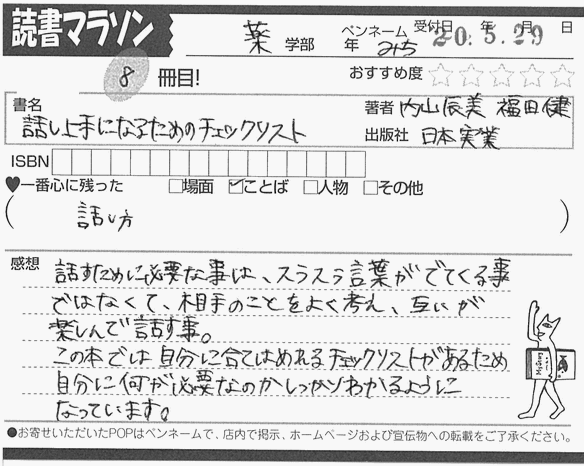 読書マラソン
薬 学部 年 ペンネーム みち 受付日 年 月 日
20.5.29
8 冊目! おすすめ度 ☆☆☆☆☆
書名 著者 内山辰美 福田健
話し上手になるためのチェックリスト 出版社 日本実業
ISBN
♥一番心に残った □場面 ☑ことば □人物 □その他
( 話し方 )
感想
話すために必要な事は、スラスラ言葉がでてくる事
ではなくて、相手のことをよく考え、互いが
楽しんで話す事。
この本では自分に合てはめれるチェックリストがあるため
自分に何が必要なのかしっかりわかるように
なっています。
●お寄せいただいたPOPはペンネームで、店内で掲示、ホームページおよび宣伝物への転載をご了承ください。